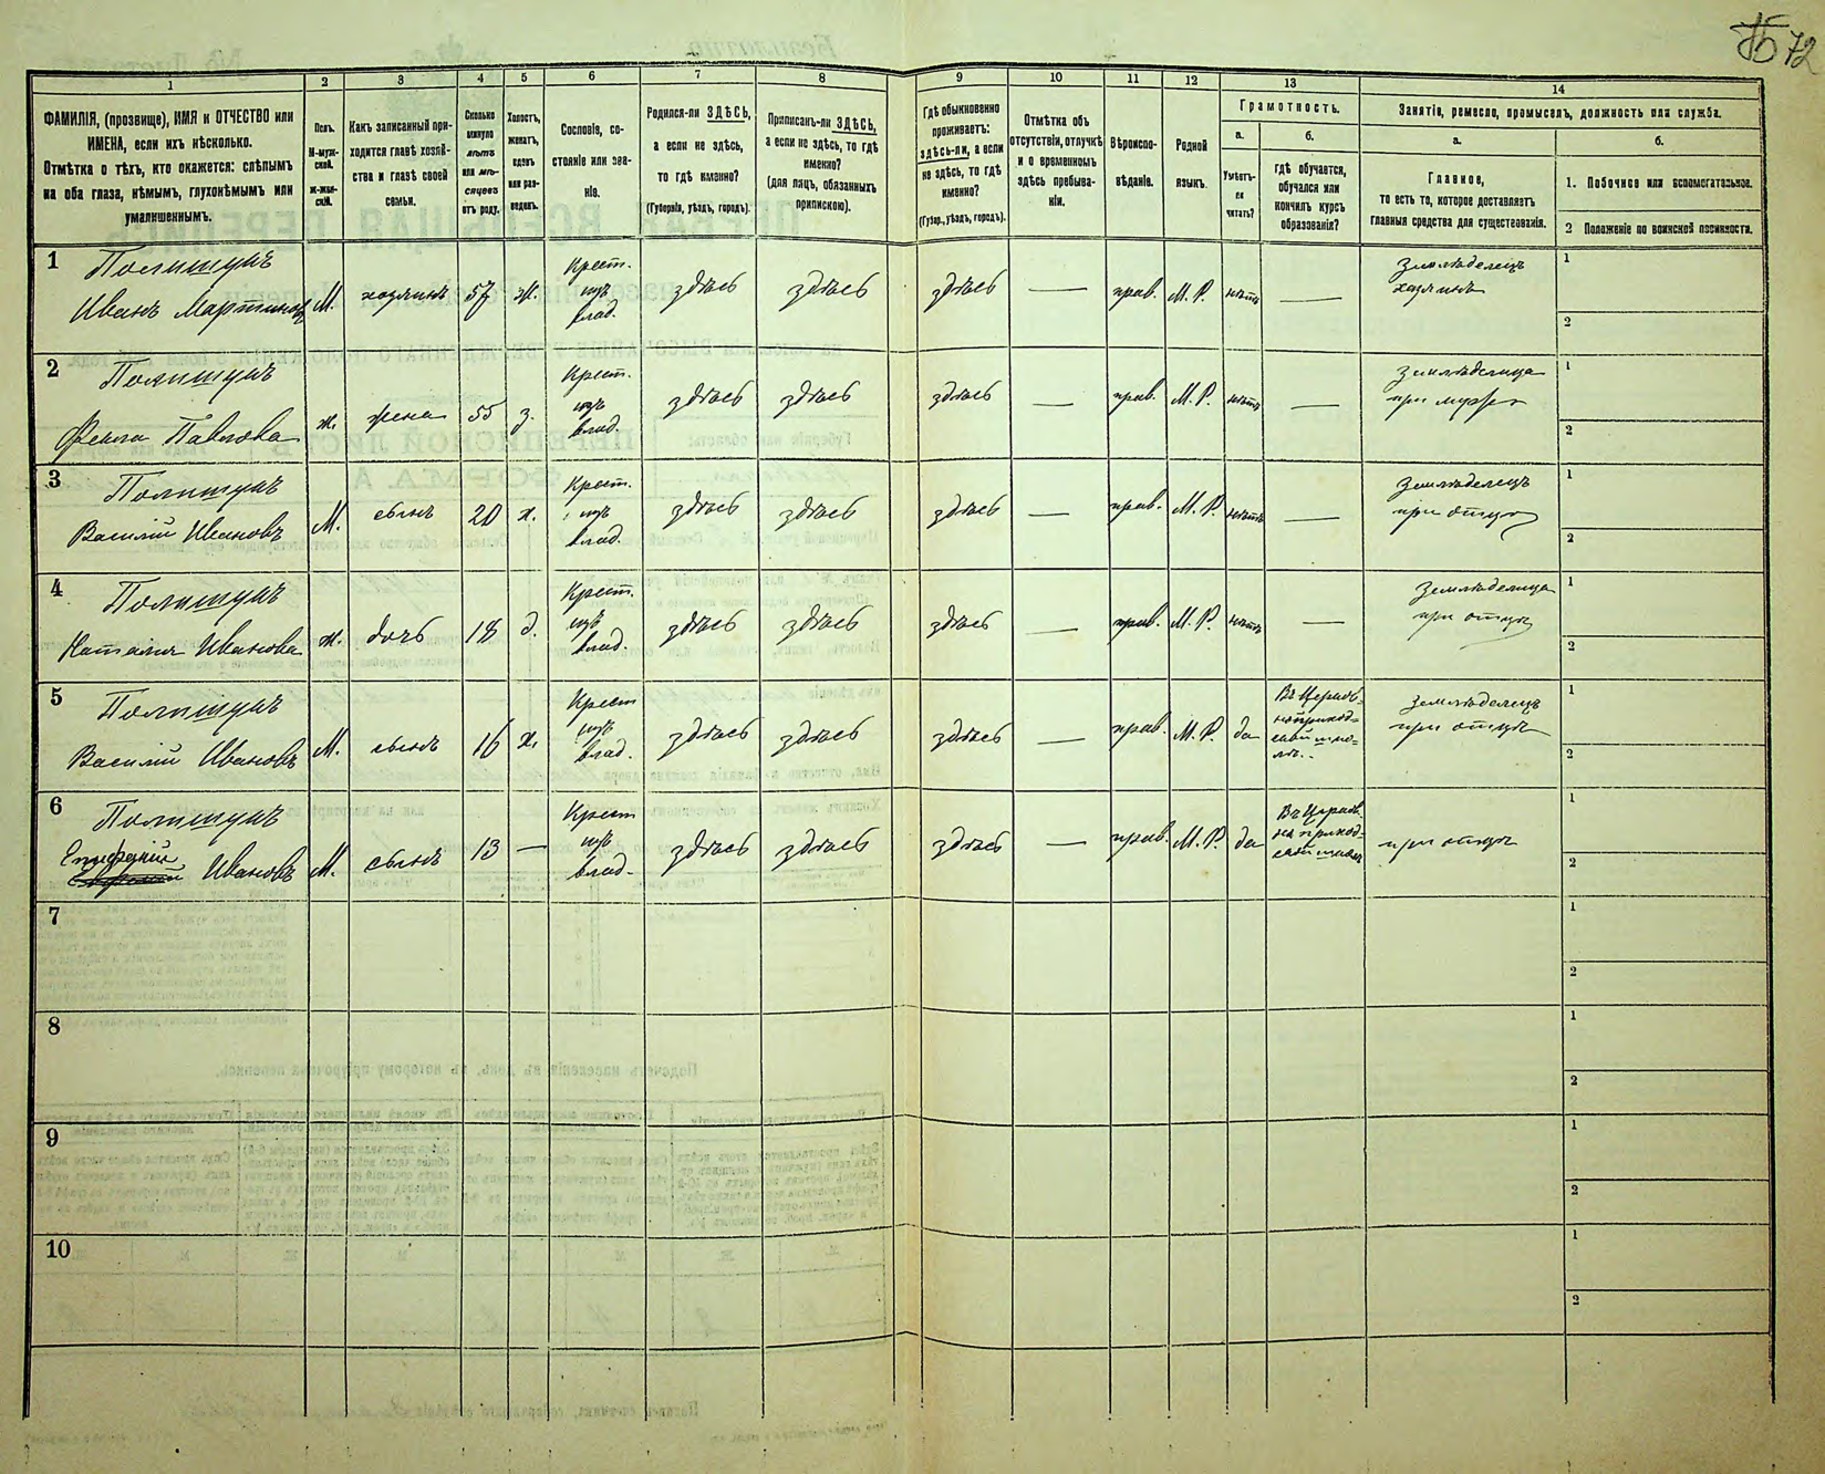 72
1
2
3
4
5
6
7
8
9
10
11
12
13
14
ФАМИЛІЯ, (прозвище), ИМЯ и ОТЧЕСТВО или
ИМЕНА, если ихъ нѣсколько.
Отмѣтка о тѣхъ, кто окажется: слѣпымъ
на оба глаза, нѣмымъ, глухонѣмымъ или
умалишеннымъ.
Полъ.
М-муж-
ской.
ж-жен-
скій.
Какъ записанный при-
ходится главѣ хозяй-
ства и главѣ своей
семьи.
Сколько
минуло
лѣтъ
или мѣ-
сяцевъ
отъ роду.
Холостъ,
женатъ,
вдовъ
или раз-
веденъ.
Сословіе, со-
стояніе или зва-
ніе.
Родился-ли ЗДѢСЬ,
а если не здѣсь,
то гдѣ именно?
(Губернія, уѣздъ, городъ).
Приписанъ-ли ЗДѢСЬ,
а если не здѣсь, то гдѣ
именно?
(для лицъ, обязанныхъ
припискою).
Гдѣ обыкновенно
проживаетъ:
здѣсь-ли, а если
не здѣсь, то гдѣ
именно?
(Губер., уѣздъ, городъ).
Отмѣтка объ
отсутствіи, отлучкѣ
и о временномъ
здѣсь пребыва-
ніи.
Вѣроиспо-
вѣданіе.
Родной
языкъ.
Грамотность.
а.
б.
Умѣетъ-
ли
читать?
гдѣ обучается,
обучался или
кончилъ курсъ
образованія?
Занятіе, ремесло, промыселъ, должность или служба.
а.
б.
Главное,
то есть то, которое доставляетъ
главныя средства для существованія.
1. Побочное или вспомогательное.
2 Положеніе по воинской повинности.
1 Полищукъ
Иванъ Мартиновъ М. хозяинъ 57 ж. Крест. изъ влад. здѣсь здѣсь здѣсь — прав. М. Р. нѣтъ — Земледѣлецъ хозяинъ 1 2
2 Полищукъ
Фекла Павлова ж. жена 55 з. Крест. изъ влад. здѣсь здѣсь здѣсь — прав. М. Р. нѣтъ — Земледѣлица при мужѣ 1 2
3 Полищукъ
Василій Ивановъ М. сынъ 20 х. Крест. изъ влад. здѣсь здѣсь здѣсь — прав. М. Р. нѣтъ — Земледѣлецъ при отцѣ 1 2
4 Полищукъ
Наталия Иванова ж. дочь 18 д. Крест. изъ влад. здѣсь здѣсь здѣсь — прав. М. Р. нѣтъ — Земледѣлица при отцѣ 1 2
5 Полищукъ
Василій Ивановъ М. сынъ 16 х. Крест изъ влад. здѣсь здѣсь здѣсь — прав. М. Р. да Въ Церков- ноприход- ской шко- лѣ. Земледѣлецъ при отцѣ 1 2
6 Полищукъ
Епифаній Ивановъ М. сынъ 13 — Крест изъ влад. здѣсь здѣсь здѣсь — прав. М. Р. да Въ Церков- но приход- ской школѣ при отцѣ 1 2
7 1 2
8 1 2
9 1 2
10 1 2